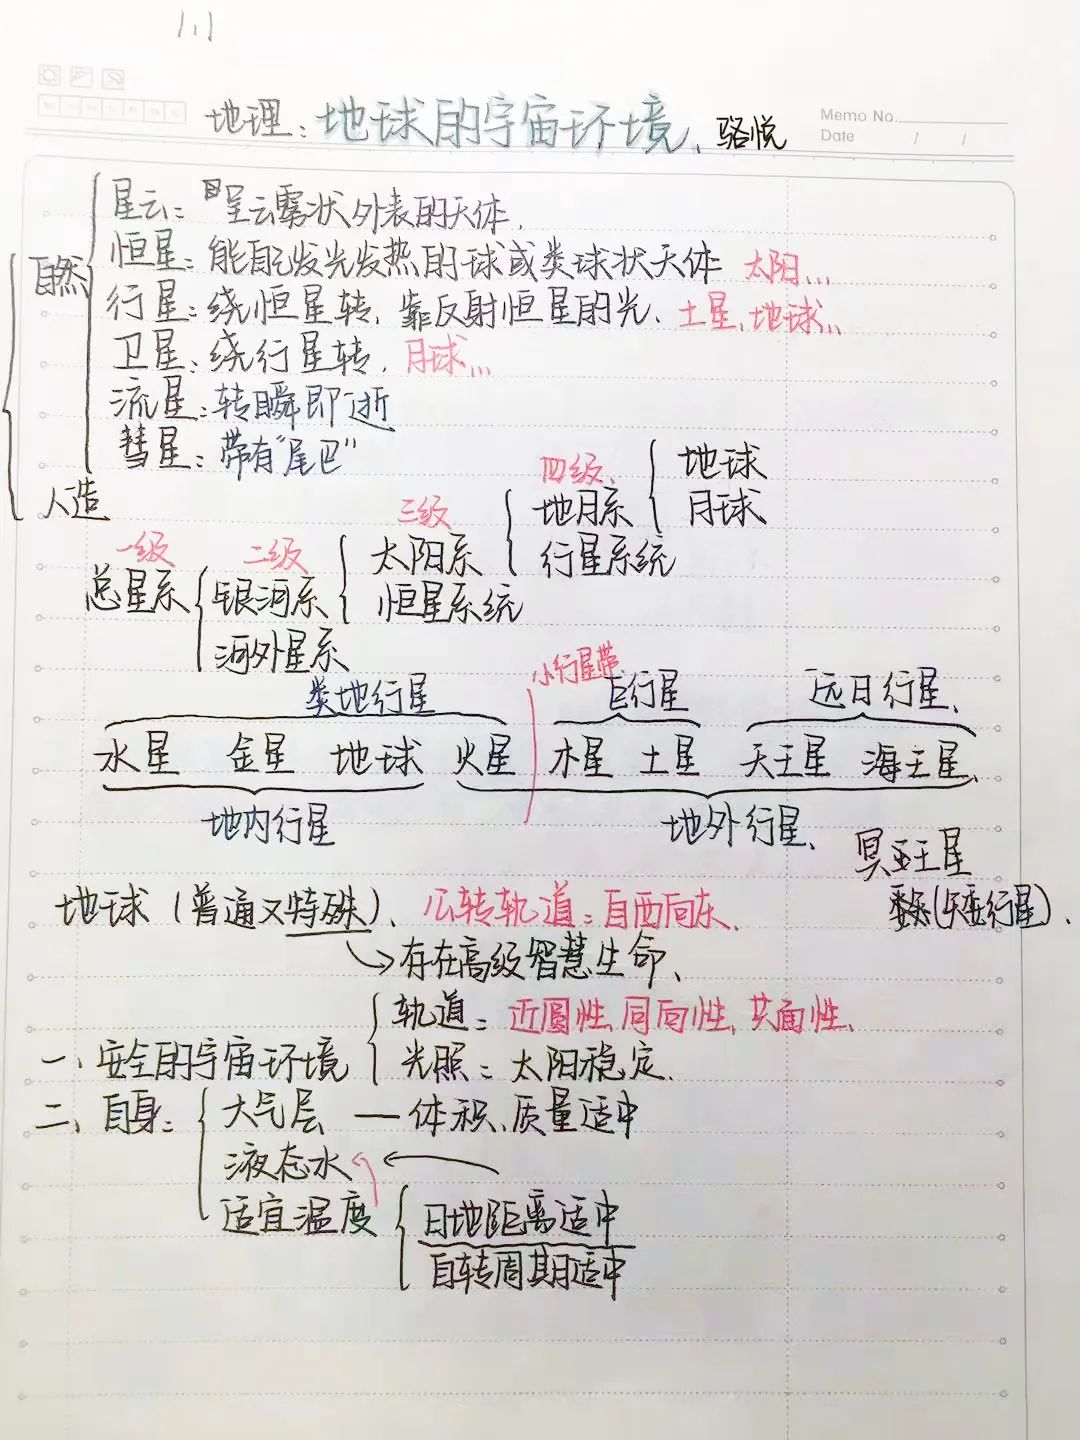 1.1
Memo No.
Date / /
地理：地球的宇宙环境、骆悦
星云：呈云雾状外表的天体.
自然
恒星：能自己发光发热的球或类球状天体 太阳...
行星：绕恒星转，靠反射恒星的光、土星、地球...
卫星：绕行星转，月球...
流星：转瞬即逝
彗星：带有"尾巴"
人造
四级、 地球
三级 地月系 月球
一级 二级 太阳系 行星系统
总星系 银河系 恒星系统
河外星系
小行星带
类地行星 巨行星 远日行星、
水星 金星 地球 火星 木星 土星 天王星 海王星、
地内行星 地外行星、
冥王星
(矮行星).
地球（普通又特殊）、公转轨道：自西向东、
→存在高级智慧生命、
轨道：近圆性、同向性、共面性、
一、安全的宇宙环境
光照：太阳稳定.
二、自身： 大气层 — 体积、质量适中
液态水 ←
适宜温度 日地距离适中
自转周期适中